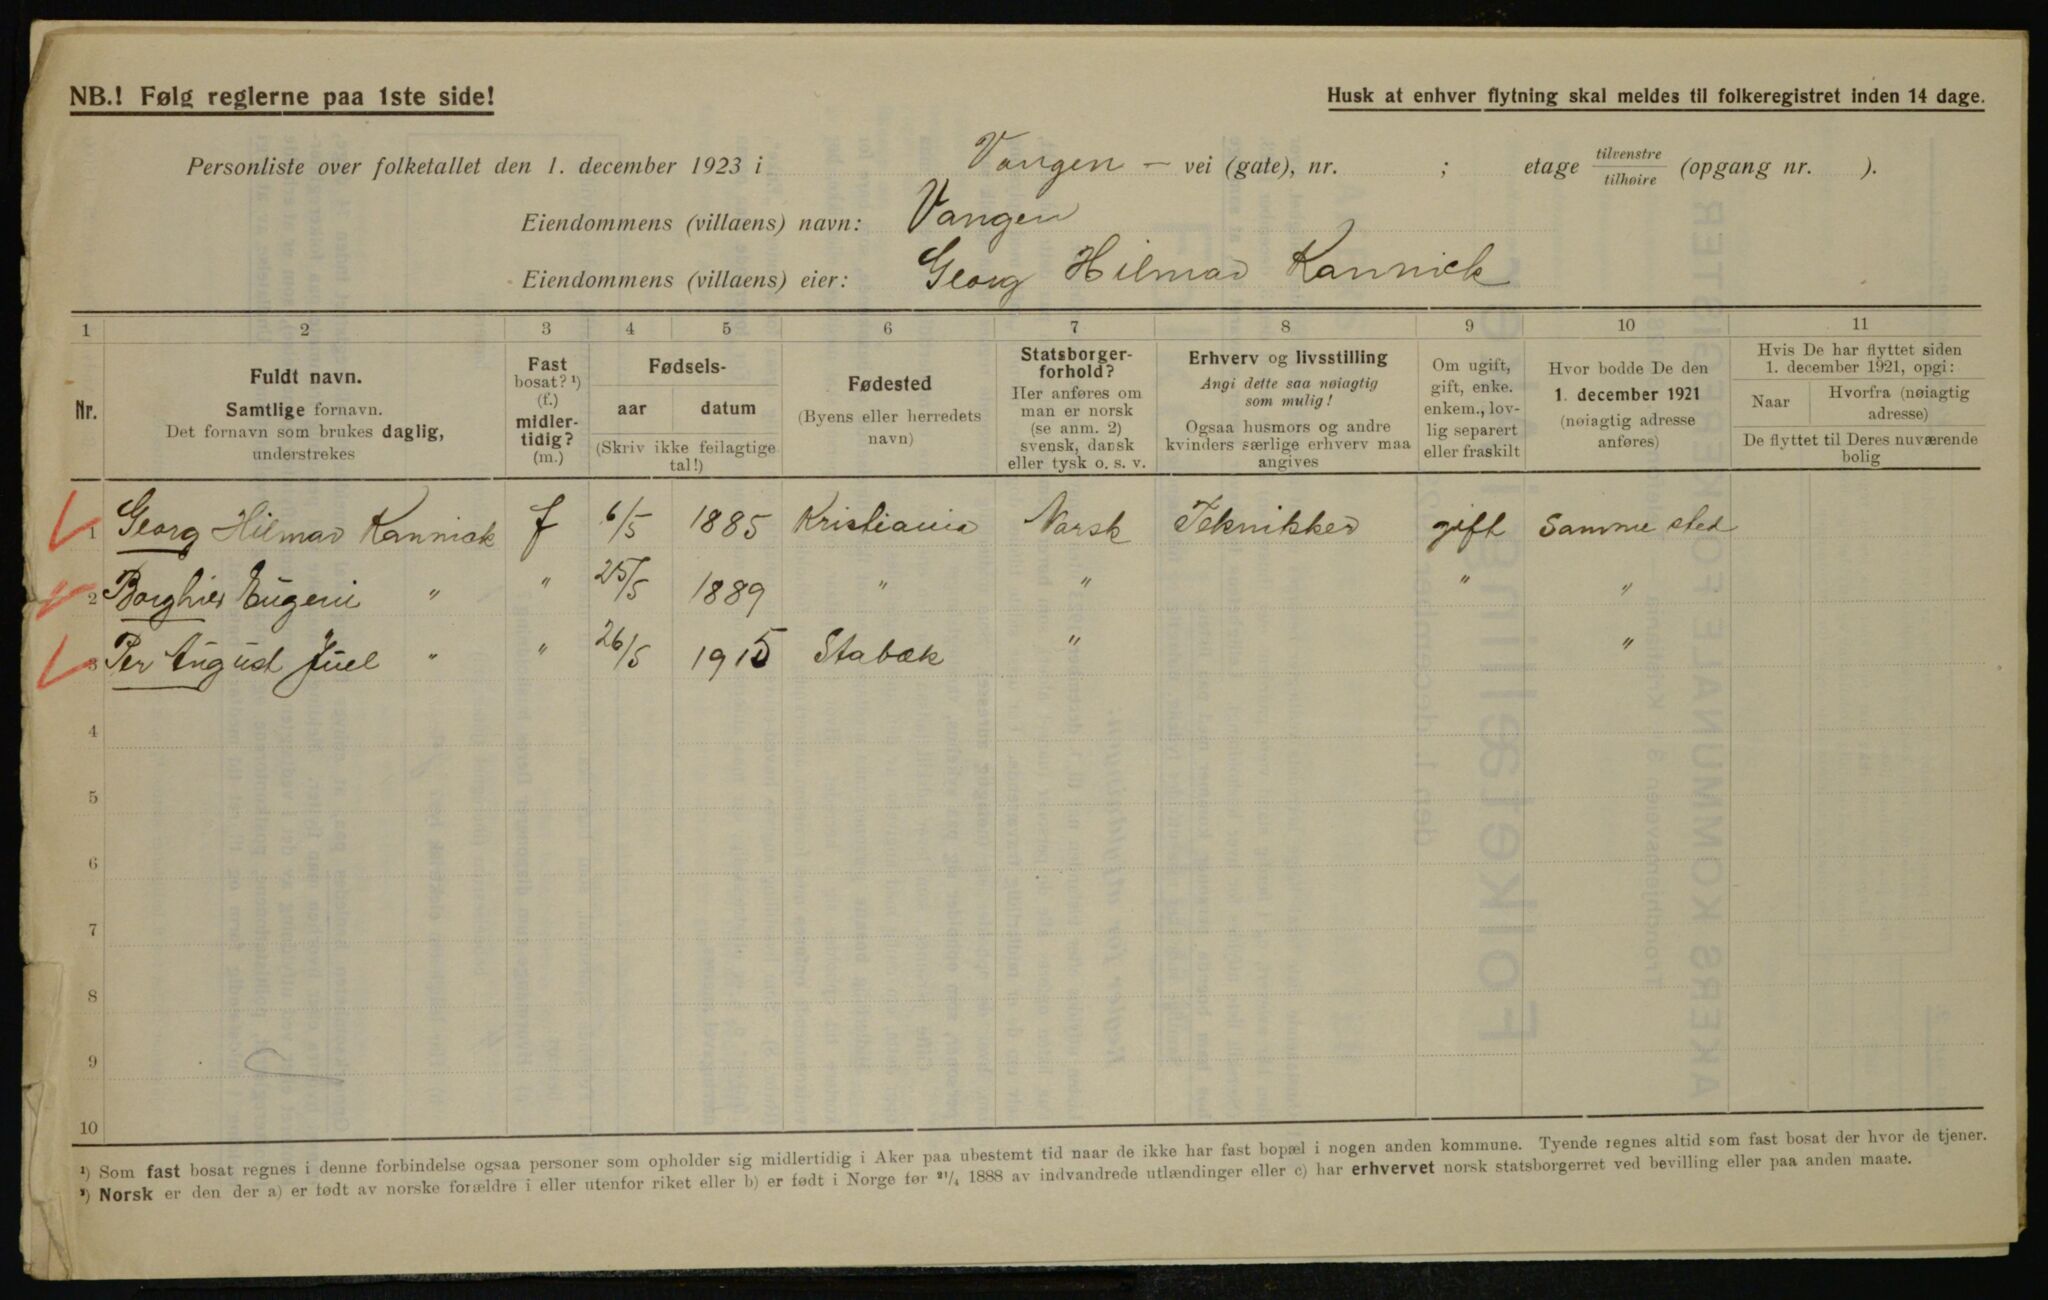 NB.! Følg reglerne paa 1ste side!
Husk at enhver flytning skal meldes til folkeregistret inden 14 dage.
Personliste over folketallet den 1. december 1923 i Vangen — vei (gate), nr. ; etage tilvenstre/tilhøire (opgang nr. ).
Eiendommens (villaens) navn: Vangen
Eiendommens (villaens) eier: Georg Hilmar Kannick
1 2 3 4 5 6 7 8 9 10 11
Nr.
Fuldt navn.
Samtlige fornavn.
Det fornavn som brukes daglig,
understrekes
Fast
bosat? ¹)
(f.)
midler-
tidig?
(m.)
Fødsels-
aar datum
(Skriv ikke feilagtige
tal!)
Fødested
(Byens eller herredets
navn)
Statsborger-
forhold?
Her anføres om
man er norsk
(se anm. 2)
svensk, dansk
eller tysk o. s. v.
Erhverv og livsstilling
Angi dette saa nøiagtig
som mulig!
Ogsaa husmors og andre
kvinders særlige erhverv maa
angives
Om ugift,
gift, enke.
enkem., lov-
lig separert
eller fraskilt
Hvor bodde De den
1. december 1921
(nøiagtig adresse
anføres)
Hvis De har flyttet siden
1. december 1921, opgi:
Naar
Hvorfra (nøiagtig
adresse)
De flyttet til Deres nuværende
bolig
1 Georg Hilmar Kannick f 6/5 1885 Kristiania Norsk Tekniker gift Samme sted
2 Borghild Eugeni " " 25/5 1889 " " " "
3 Per August Juel " " 26/5 1915 Stabæk " "
4
5
6
7
8
9
10
¹) Som fast bosat regnes i denne forbindelse ogsaa personer som opholder sig midlertidig i Aker paa ubestemt tid naar de ikke har fast bopæl i nogen anden kommune. Tyende regnes altid som fast bosat der hvor de tjener.
²) Norsk er den der a) er født av norske forældre i eller utenfor riket eller b) er født i Norge før 21/4 1888 av indvandrede utlændinger eller c) har erhvervet norsk statsborgerret ved bevilling eller paa anden maate.